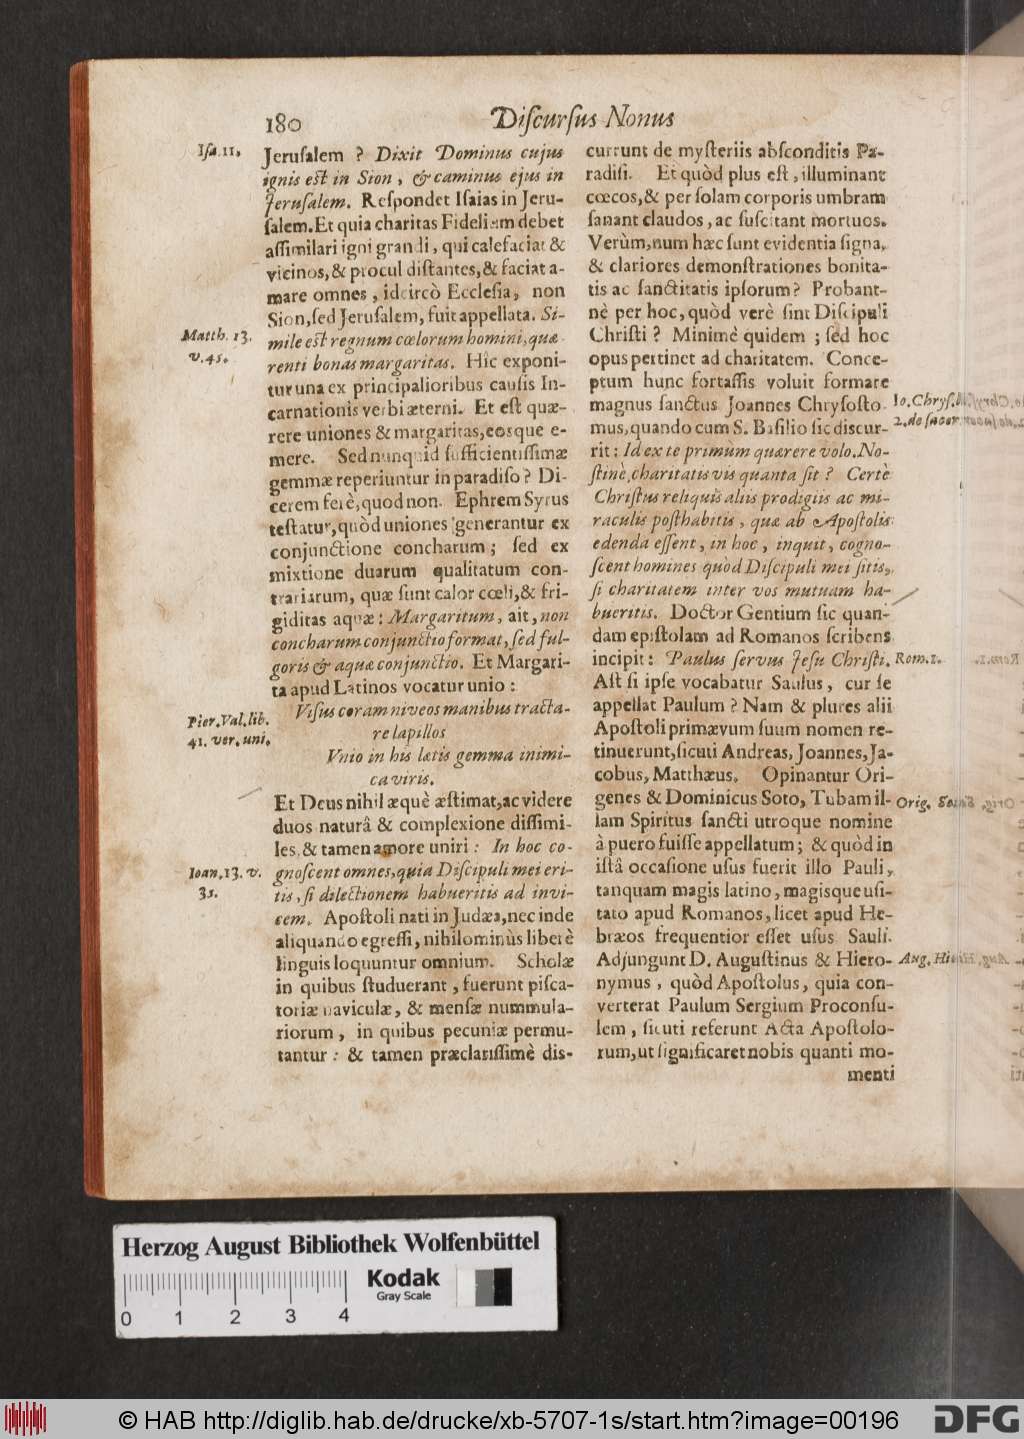 180
Diſcurſus Nonus
Iſa. 11.
Jeruſalem ? Dixit Dominus cujus
ignis eſt in Sion, & caminus ejus in
Jeruſalem. Reſpondet Iſaias in Jeru-
ſalem. Et quia charitas Fidelium debet
aſſimilari igni grandi, qui calefaciat &
vicinos, & procul diſtantes, & faciat a-
mare omnes, idcircò Eccleſia, non
Sion, ſed Jeruſalem, fuit appellata. Si-
Matth. 13.
v. 45.
mile eſt regnum cœlorum homini, quæ-
renti bonas margaritas. Hîc exponi-
tur una ex principalioribus cauſis In-
carnationis verbi æterni. Et eſt quæ-
rere uniones & margaritas, eosque e-
mere. Sed nunquid ſufficientiſſimæ
gemmæ reperiuntur in paradiſo? Di-
cerem ferè, quod non. Ephrem Syrus
teſtatur, quòd uniones generantur ex
conjunctione concharum; ſed ex
mixtione duarum qualitatum con-
trariarum, quæ ſunt calor cœli, & fri-
giditas aquæ: Margaritum, ait, non
concharum conjunctio format, ſed ful-
goris & aquæ conjunctio. Et Margari-
ta apud Latinos vocatur unio :
Pier. Val. lib.
41. ver. uni.
Viſus coram niveos manibus tracta-
re lapillos
Vnio in his latis gemma inimi-
ca viris.
Et Deus nihil æquè æſtimat, ac videre
duos naturâ & complexione diſſimi-
les, & tamen amore uniri : In hoc co-
Ioan. 13. v.
35.
gnoſcent omnes, quia Diſcipuli mei eri-
tis, ſi dilectionem habueritis ad invi-
cem. Apoſtoli nati in Judæa, nec inde
aliquando egreſſi, nihilominùs liberè
linguis loquuntur omnium. Scholæ
in quibus ſtuduerant, fuerunt piſca-
toriæ naviculæ, & menſæ nummula-
riorum, in quibus pecuniæ permu-
tantur : & tamen præclariſſimè dis-
currunt de myſteriis abſconditis Pa-
radiſi. Et quòd plus eſt, illuminant
cœcos, & per ſolam corporis umbram
ſanant claudos, ac ſuſcitant mortuos.
Verùm, num hæc ſunt evidentia ſigna,
& clariores demonſtrationes bonita-
tis ac ſanctitatis ipſorum? Probant-
nè per hoc, quòd verè ſint Diſcipuli
Chriſti ? Minimè quidem ; ſed hoc
opus pertinet ad charitatem. Conce-
ptum hunc fortaſſis voluit formare
magnus ſanctus Joannes Chryſoſto-
Io. Chryſ. l.
2. de ſacer.
mus, quando cum S. Baſilio ſic discur-
rit : Id ex te primum quærere volo. No-
ſtinè, charitatis vis quanta ſit ? Certè
Chriſtus reliquis aliis prodigiis ac mi-
raculis poſthabitis, quæ ab Apoſtolis
edenda eſſent, in hoc, inquit, cogno-
ſcent homines quòd Diſcipuli mei ſitis,
ſi charitatem inter vos mutuam ha-
bueritis. Doctor Gentium ſic quan-
dam epiſtolam ad Romanos ſcribens
incipit : Paulus ſervus Jeſu Chriſti.
Rom. 1.
Aſt ſi ipſe vocabatur Saulus, cur ſe
appellat Paulum ? Nam & plures alii
Apoſtoli primævum ſuum nomen re-
tinuerunt, ſicuti Andreas, Joannes, Ja-
cobus, Matthæus. Opinantur Ori-
genes & Dominicus Soto, Tubam il-
Orig.
lam Spiritus ſancti utroque nomine
à puero fuiſſe appellatum; & quòd in
iſtâ occaſione uſus fuerit illo Pauli,
tanquam magis latino, magisque uſi-
tato apud Romanos, licet apud He-
bræos frequentior eſſet uſus Sauli.
Adjungunt D. Auguſtinus & Hiero-
Aug. Hier.
nymus, quòd Apoſtolus, quia con-
verterat Paulum Sergium Proconſu-
lem, ſicuti referunt Acta Apoſtolo-
rum, ut ſignificaret nobis quanti mo-
menti
Herzog August Bibliothek Wolfenbüttel
Kodak
Gray Scale
0 1 2 3 4
© HAB http://diglib.hab.de/drucke/xb-5707-1s/start.htm?image=00196
DFG